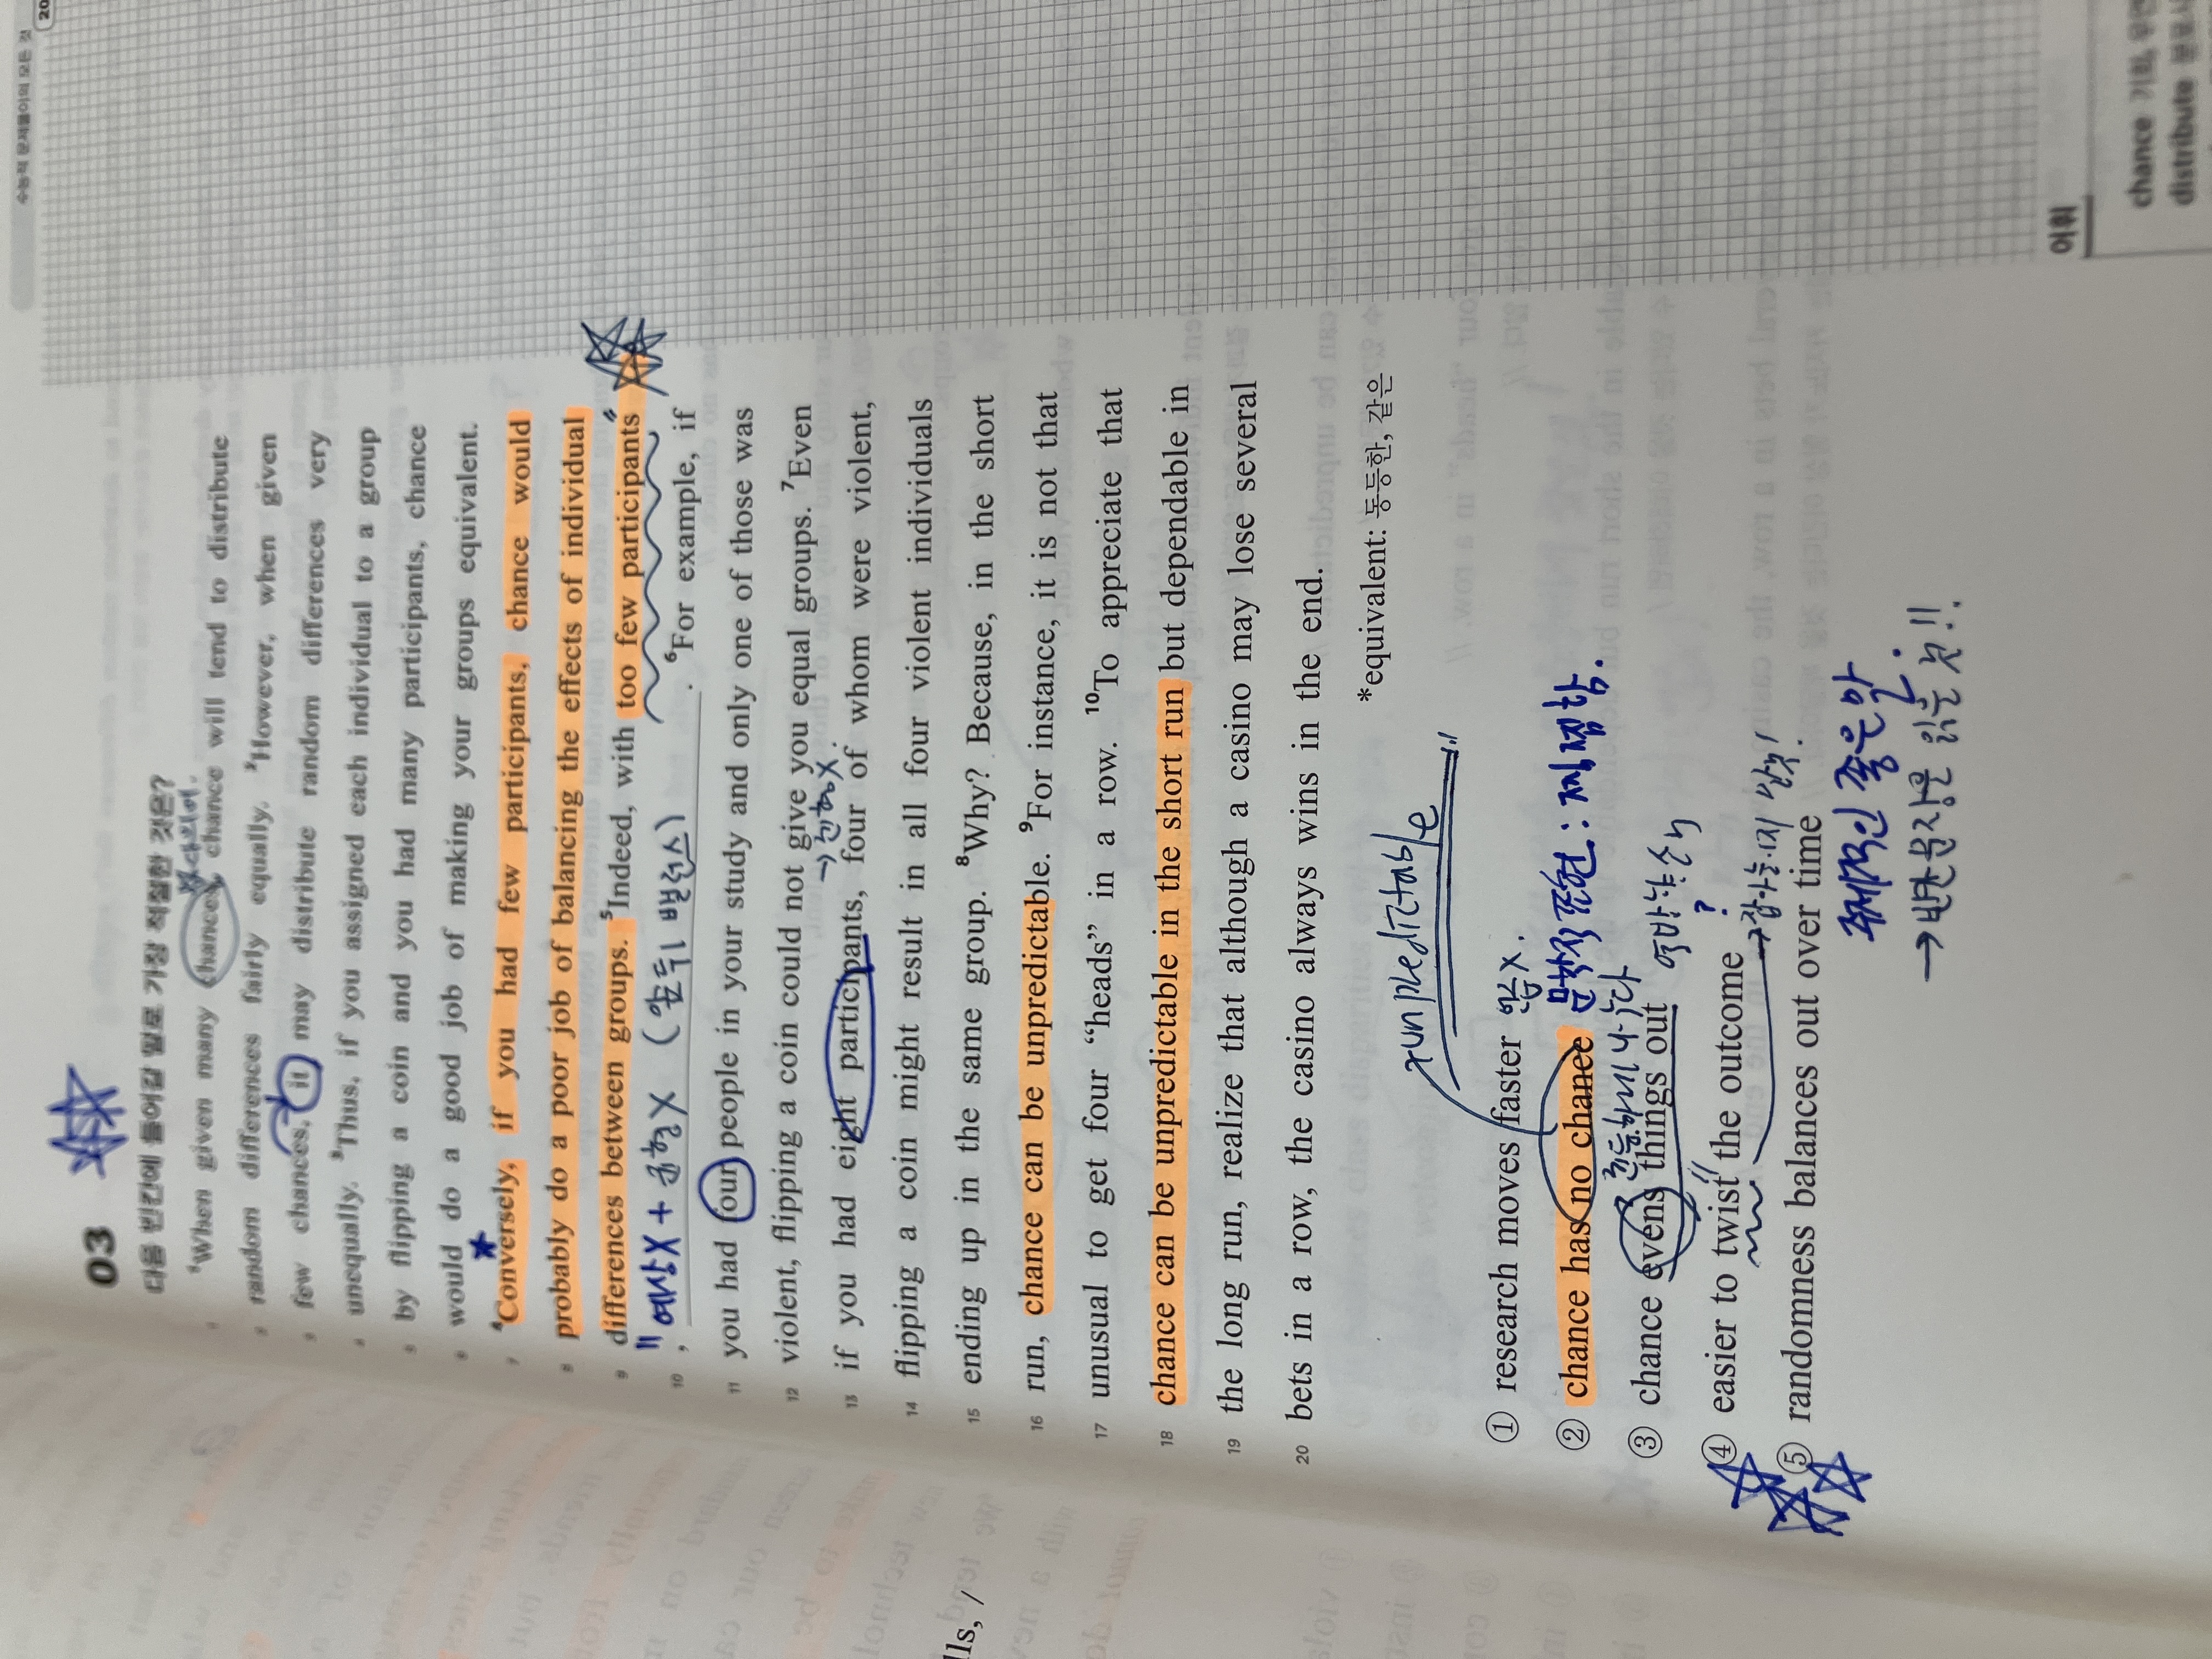 03
다음 빈칸에 들어갈 말로 가장 적절한 것은?
¹When given many chances, chance will tend to distribute
random differences fairly equally. ²However, when given
few chances, it may distribute random differences very
unequally. ³Thus, if you assigned each individual to a group
by flipping a coin and you had many participants, chance
would do a good job of making your groups equivalent.
⁴Conversely, if you had few participants, chance would
probably do a poor job of balancing the effects of individual
differences between groups. ⁵Indeed, with too few participants
"예상X + 균형X (앞뒤 밸런스)
, . ⁶For example, if
you had four people in your study and only one of those was
violent, flipping a coin could not give you equal groups. ⁷Even
if you had eight participants, four of whom were violent,
flipping a coin might result in all four violent individuals
ending up in the same group. ⁸Why? Because, in the short
run, chance can be unpredictable. ⁹For instance, it is not that
unusual to get four "heads" in a row. ¹⁰To appreciate that
chance can be unpredictable in the short run but dependable in
the long run, realize that although a casino may lose several
bets in a row, the casino always wins in the end.
*equivalent: 동등한, 같은
unpredictable
① research moves faster 언급X.
② chance has no chance
③ chance evens things out
④ easier to twist the outcome
⑤ randomness balances out over time
주제적인 좋은 말.
→ 빈칸문장은 읽은 것!!.
어휘
chance 기회,
distribute